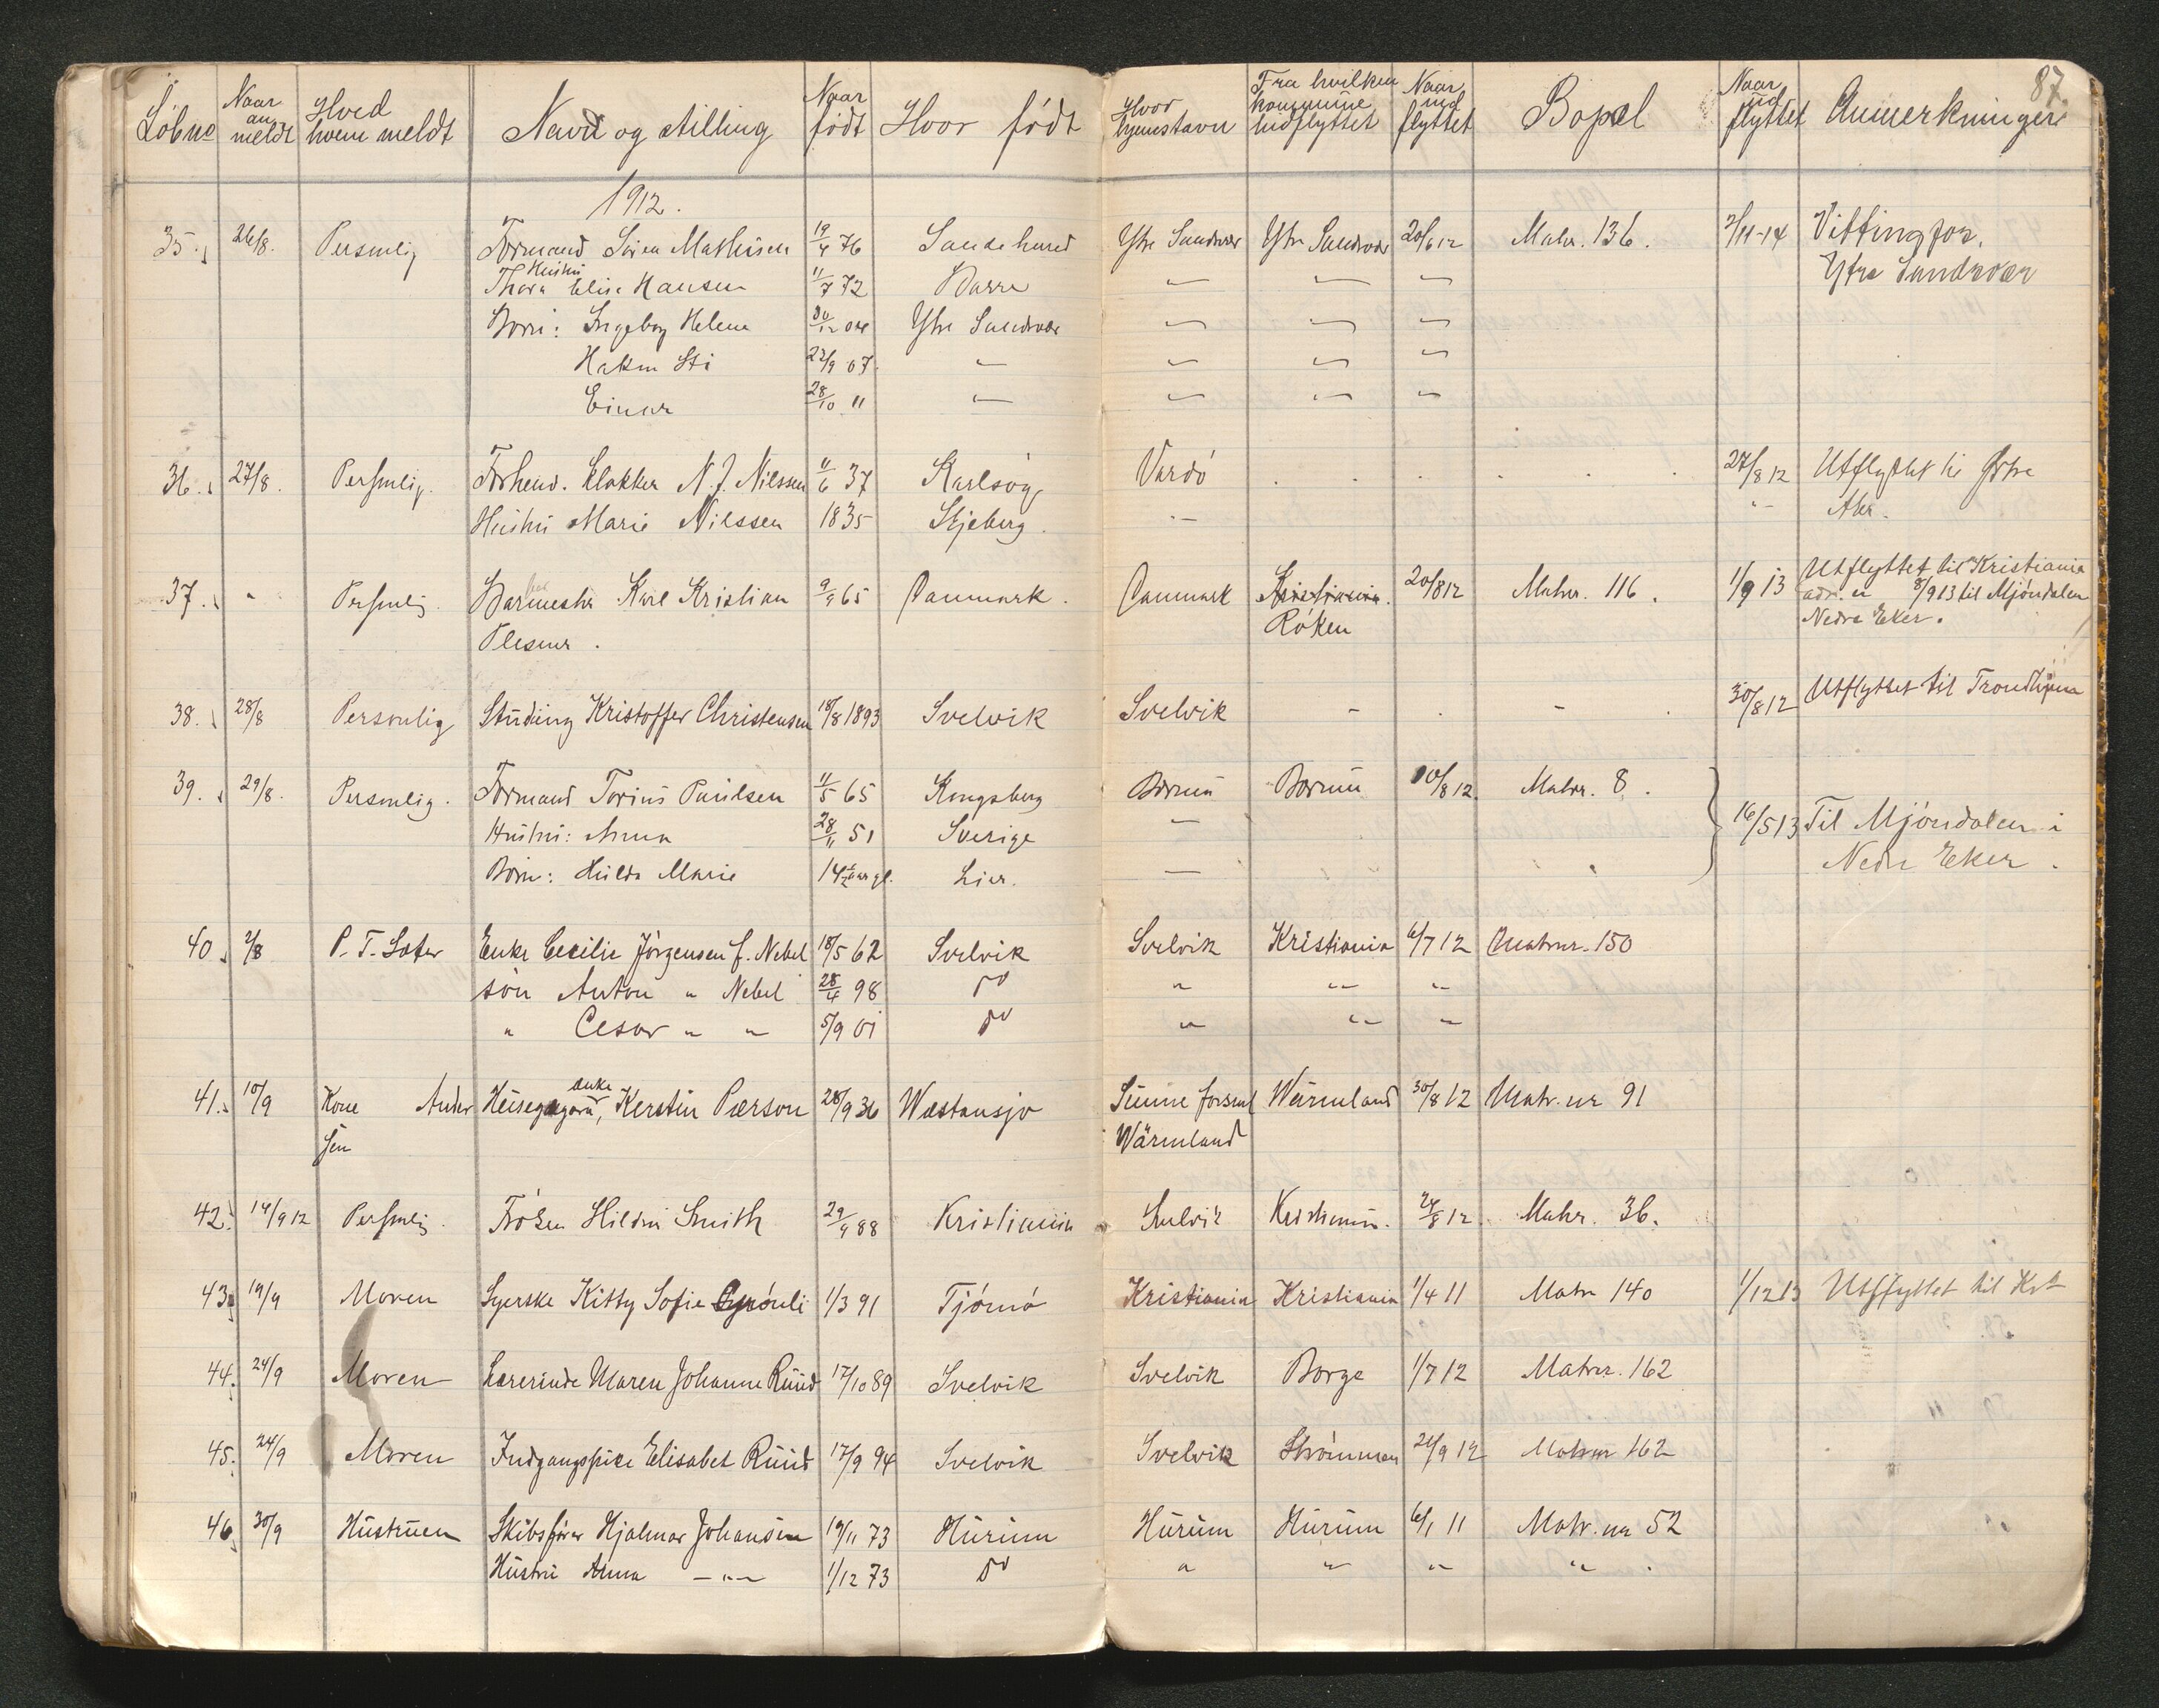 87.
Löbno Naar anmeldt Hved hvem meldt Navn og stilling Naar födt Hvor födt Hvor hjemstavn Fra hvilken kommune indflyttet Naar indflyttet Bopæl Naar udflyttet Anmerkninger
1912.
35. 26/8. Personlig Formand Sören Mathisen 19/4 76 Sandehered Ytre Sandsvær Ytre Sandsvær 20/6 12 Matr. 136. 2/11-14 Vittingfos.
Hustru Thora Elise Hansen 11/7 72 Borre — — — Ytre Sandsvær
Börn: Ingeborg Helene 30/12 04 Ytre Sandsvær — — —
Hakon Sti 22/9 07 — — — —
Einar 28/10 11 — — — —
36. 27/8. Personlig. Forhenv. Klokker N. J. Nilssen 11/6 37 Karlsöy Vardö 27/8 12 Utflyttet til Östre
Hustru Marie Nilssen 1835 Skjeberg. — " Aker.
37. " Personlig Karl Kristian 9/9 65 Danmark. Danmark Kristiania. 20/8 12 Matr. 116. 1/9 13 Utflyttet til Kristiania
Plesner. Röken 8/9 13 til Mjöndalen
Nedre Eker.
38. 28/8 Personlig Studiing Kristoffer Christensen 18/8 1893 Svelvik Svelvik - . - . 30/8 12 Utflyttet til Trondhjem
39. 29/8. Personlig. Formand Torius Paulsen 11/5 65 Kongsberg Borrum Borrum 10/8 12. Matr. 8.
Hustru: Anna 28/11 51 Sverige — 16/5 13 Til Mjöndalen i
Börn: Hilda Marie 14½ aar gl. Lier. — Nedre Eker.
40. 2/8 P. T. Sater Enke Cecilie Jörgensen f. Nebel 18/5 62 Svelvik Svelvik Kristiania 6/7 12 Matrnr. 150
sön Anton " Nebel 28/4 98 do " " "
" Cesar " " 5/9 01 do " " "
41. 10/9 Kone Ander enke, Kerstin Pærson 28/9 36 Wæstansjo Sunne forsml Wärmland 30/8 12 Matr. nr 91
sen Wärmland
42. 14/9 12 Personlig Fröken Hildur Smith 29/9 88 Kristiania Svelvik Kristiania. 24/8 12 Matr. 36.
43. 19/9 Moren Syerske Kitty Sofie 1/3 91 Tjömö Kristiania Kristiania 1/4 11 Matr 140 1/12 13 Utflyttet til Krt
44. 24/9 Moren Lærerinde Maren Johanne Ruud 17/10 89 Svelvik Svelvik Borge 1/7 12 Matrnr. 162
45. 24/9 Moren Indgangspike Elisabet Ruud 17/9 94 Svelvik Svelvik Strömmen 21/9 12 Matrnr 162
46. 30/9 Hustruen Skibsförer Hjalmar Johansen 19/11 73 Hurum Hurum Hurum 6/1 11 Matr. nr 52
Hustru Anna — " — 1/12 73 do " " " "